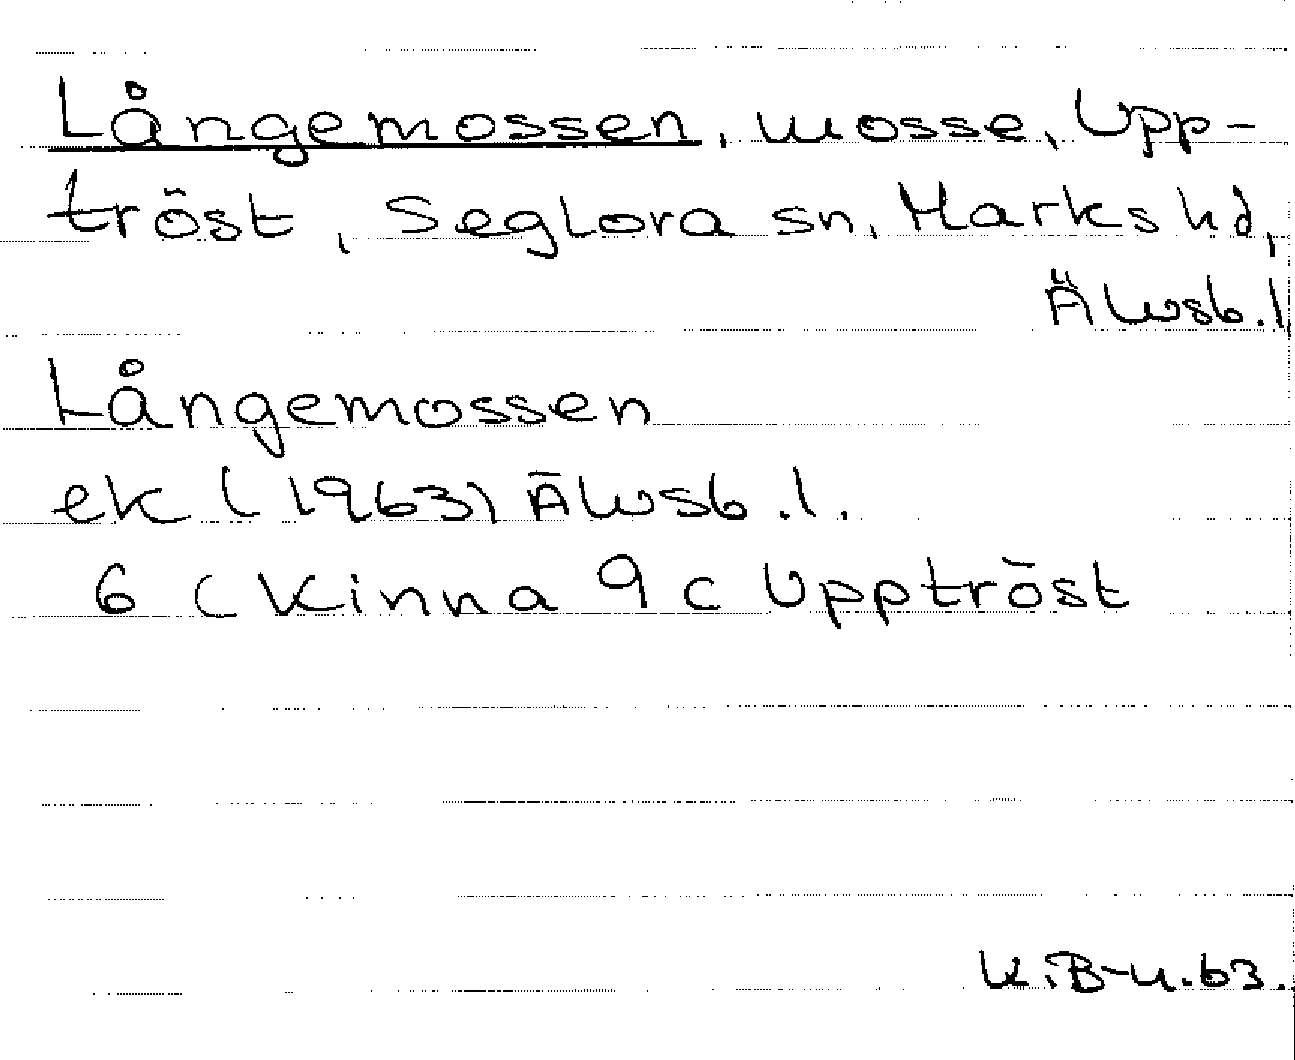 Långemossen, mosse, Upp-
tröst, Seglora sn, Marks hd,
Älvsb. l
Långemossen
ek (1963) Älvsb. l.
6 C Kinna 9 c Upptröst
K.B-u.63.